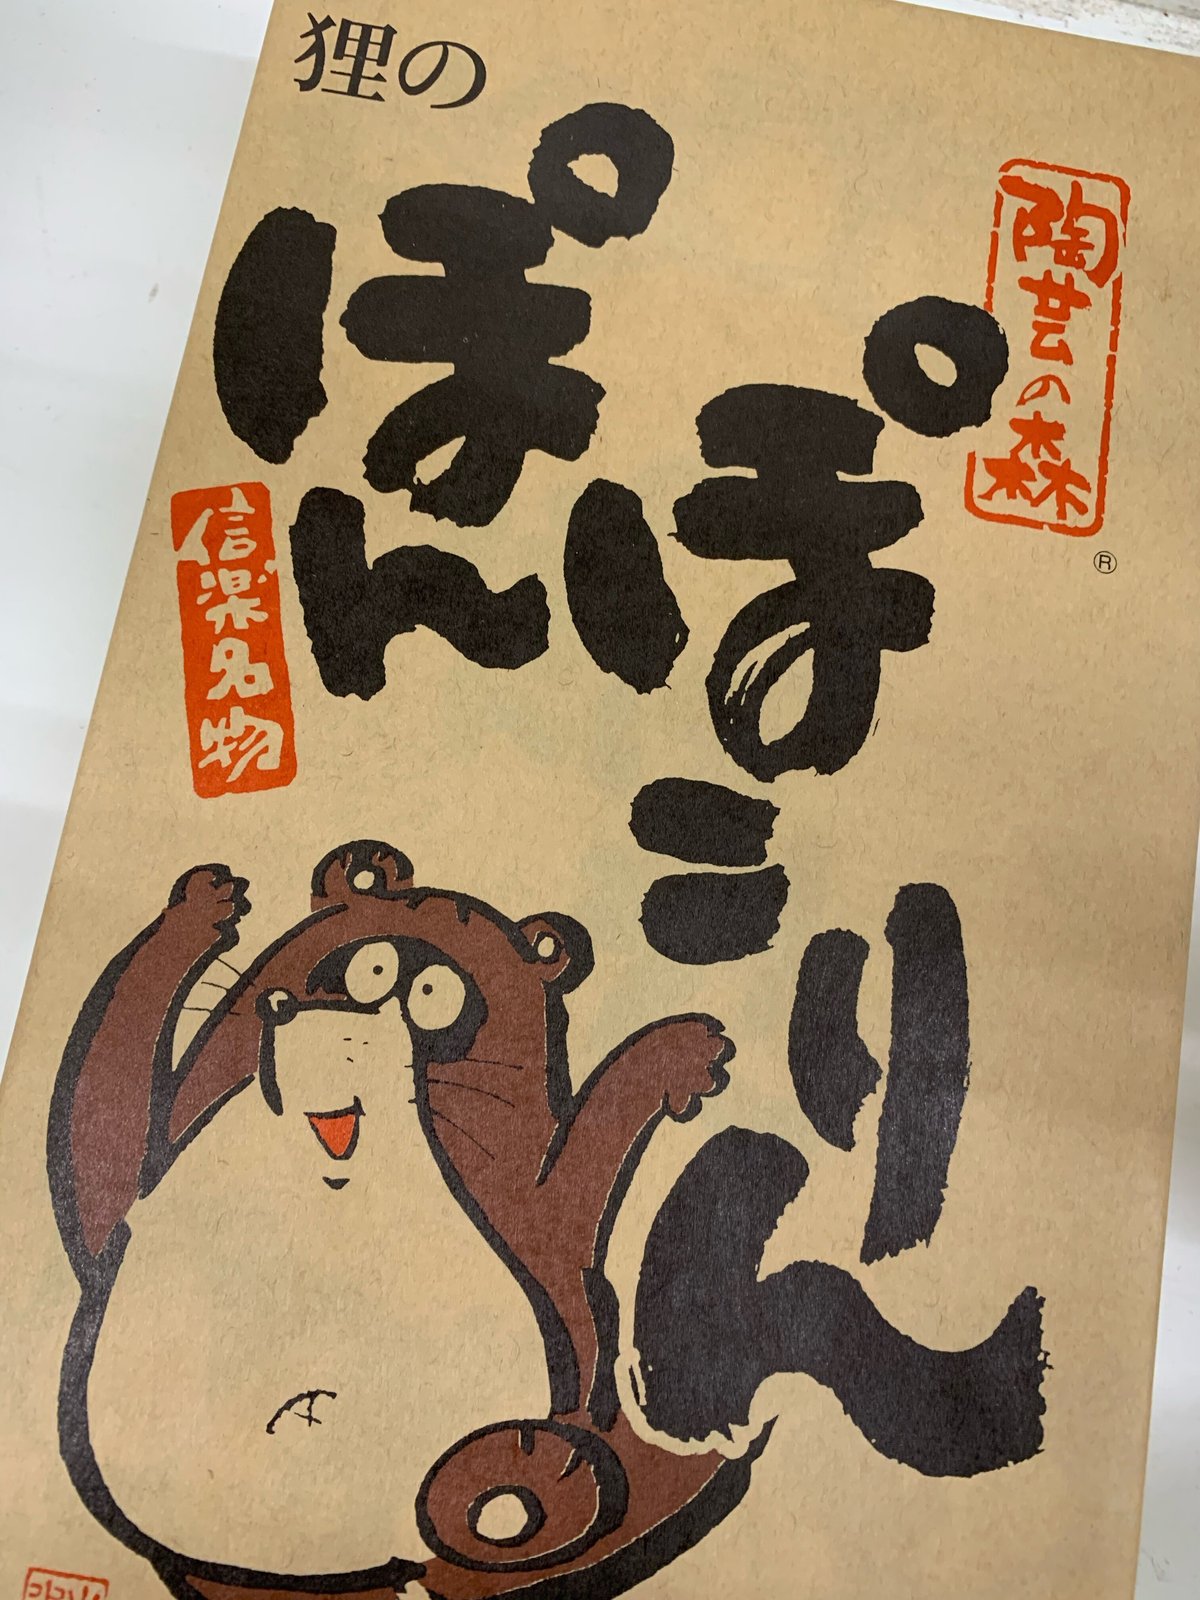 狸の
ぽん
ぽこりん
陶芸の森
®
信楽名物